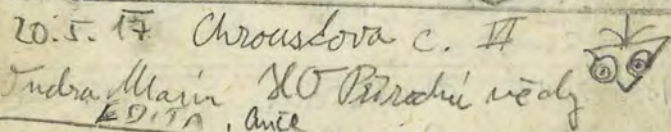 20.5.17 Chrouslova c. VI
Indra Marin HO Přírodní vědy
EDITA, Anče